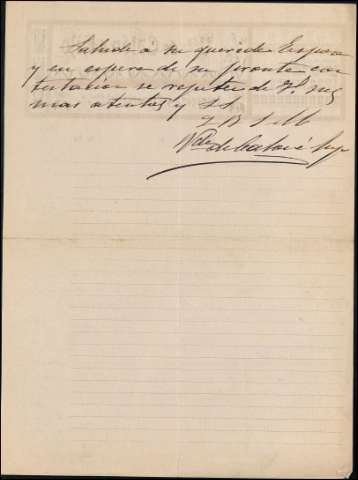 Salude á su querida Esposa
y en espera de su pronta con
testacion se repite de V. su
mas atento y S. S.
Q B S M